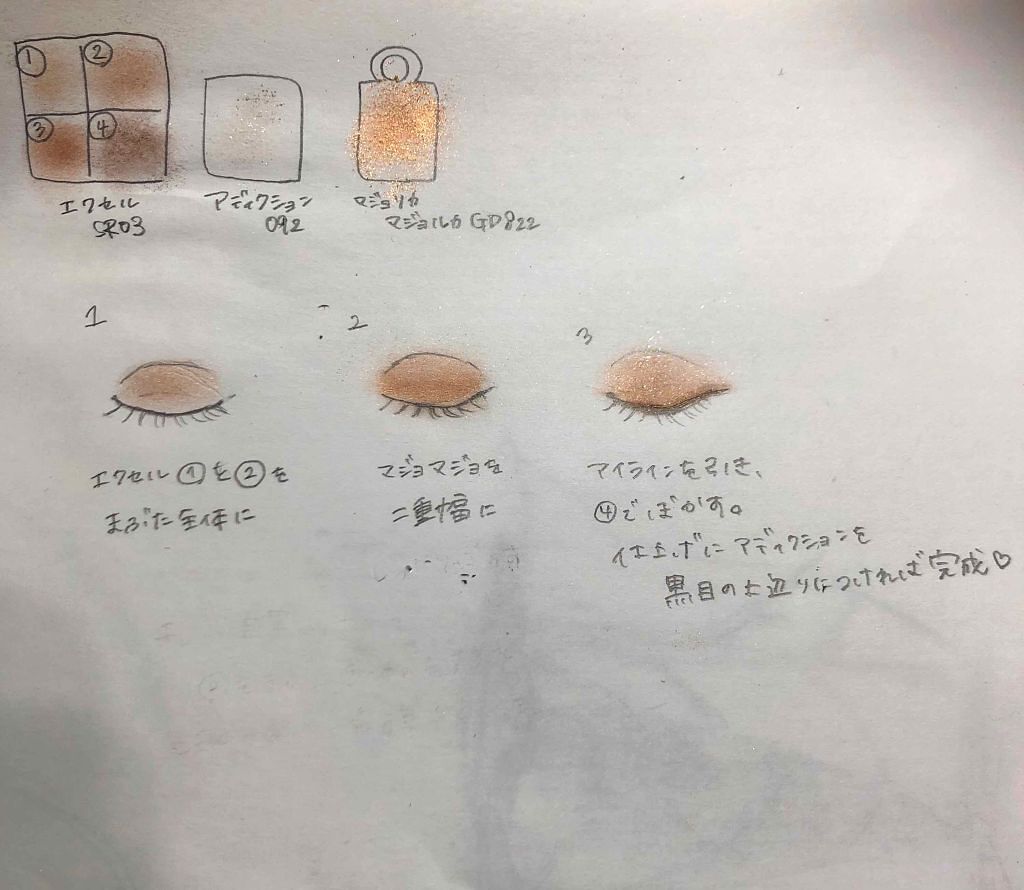 ① ②
③ ④
エクセル
SR03
アディクション
092
マジョリカ
マジョルカ GD822
1
エクセル①を②を
まぶた全体に
2
マジョマジョを
二重幅に
3
アイラインを引き、
④でぼかす。
仕上げにアディクションを
黒目の上辺りにつければ完成♡